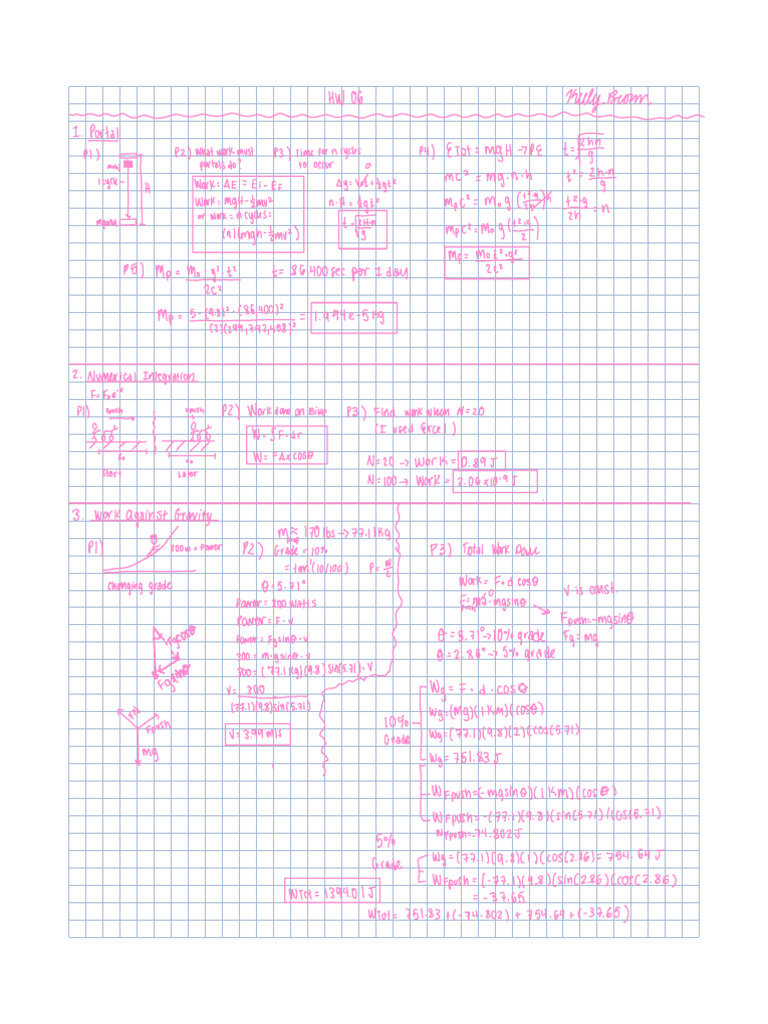 HW 06
1. Portal
P1)
1 cycle
H
P2) What work must
portals do?
Work = ΔE = Ei - Ef
Work = mgH - ½mv²
or work = n cycles:
(n)(mgh - ½mv²)
P3) Time for n cycles
to occur
n·H = ½gt²
t = √2Hn/g
P4) ETot = mgH → PE
mc² = mg·n·h
t² = 2h·n/g
t²·g/2h = n
mpc² = mog(t²·g/2)
Mp = Mo t²·g²/2c²
P5) Mp = Mo·g²t²/2c²
t = 86,400 sec per 1 day
Mp = 5·(9.8)²·(86,400)²/(2)(299,792,458)² = 1.494e-5 Kg
2. Numerical Integration
P1)
Start
Later
P2) Work done on Bing
W = ∫F·dr
W = FΔxcosθ
P3) Find work when N=20
(I used Excel)
N=20 → Work = 0.89 J
N=100 → Work = 2.06 x 10^-9 J
3. Work Against Gravity
P1)
300w = Power
changing grade
Fgcosθ
Fgsinθ
Fpush
mg
P2)
m ≈ 170 lbs → 77.11 kg
Grade = 10%
= tan⁻¹(10/100)
θ = 5.71°
Power = 300 Watts
Power = F·v
Power = Fgsinθ·v
300 = m·gsinθ·v
300 = (77.1 kg)(9.8)sin(5.71)·v
v = 300/(77.1)(9.8)sin(5.71)
V = 3.99 m/s
P3) Total Work Done
Work = F·d cosθ
V is const.
Fpush = -mgsinθ
Fg = mg
θ = 5.71° → 10% grade
θ = 2.86° → 5% grade
10%
Grade
Wg = F·d·cosθ
Wg = (mg)(1Km)(cosθ)
Wg = (77.1)(9.8)(2)(cos(5.71)
Wg = 751.83 J
WFpush = (-mgsinθ)(1Km)(cosθ)
WFpush = -(77.1)(9.8)(sin(5.71)(cos(5.71)
WFpush = -74.802 J
5%
Grade
Wg = (77.1)(9.8)(1)(cos(2.86) = 754.64 J
WFpush = (-77.1)(9.8)(sin(2.86)(cos(2.86)
= -37.65
WTot = 1394.01 J
WTot = 751.83 + (-74.802) + 754.64 + (-37.65)